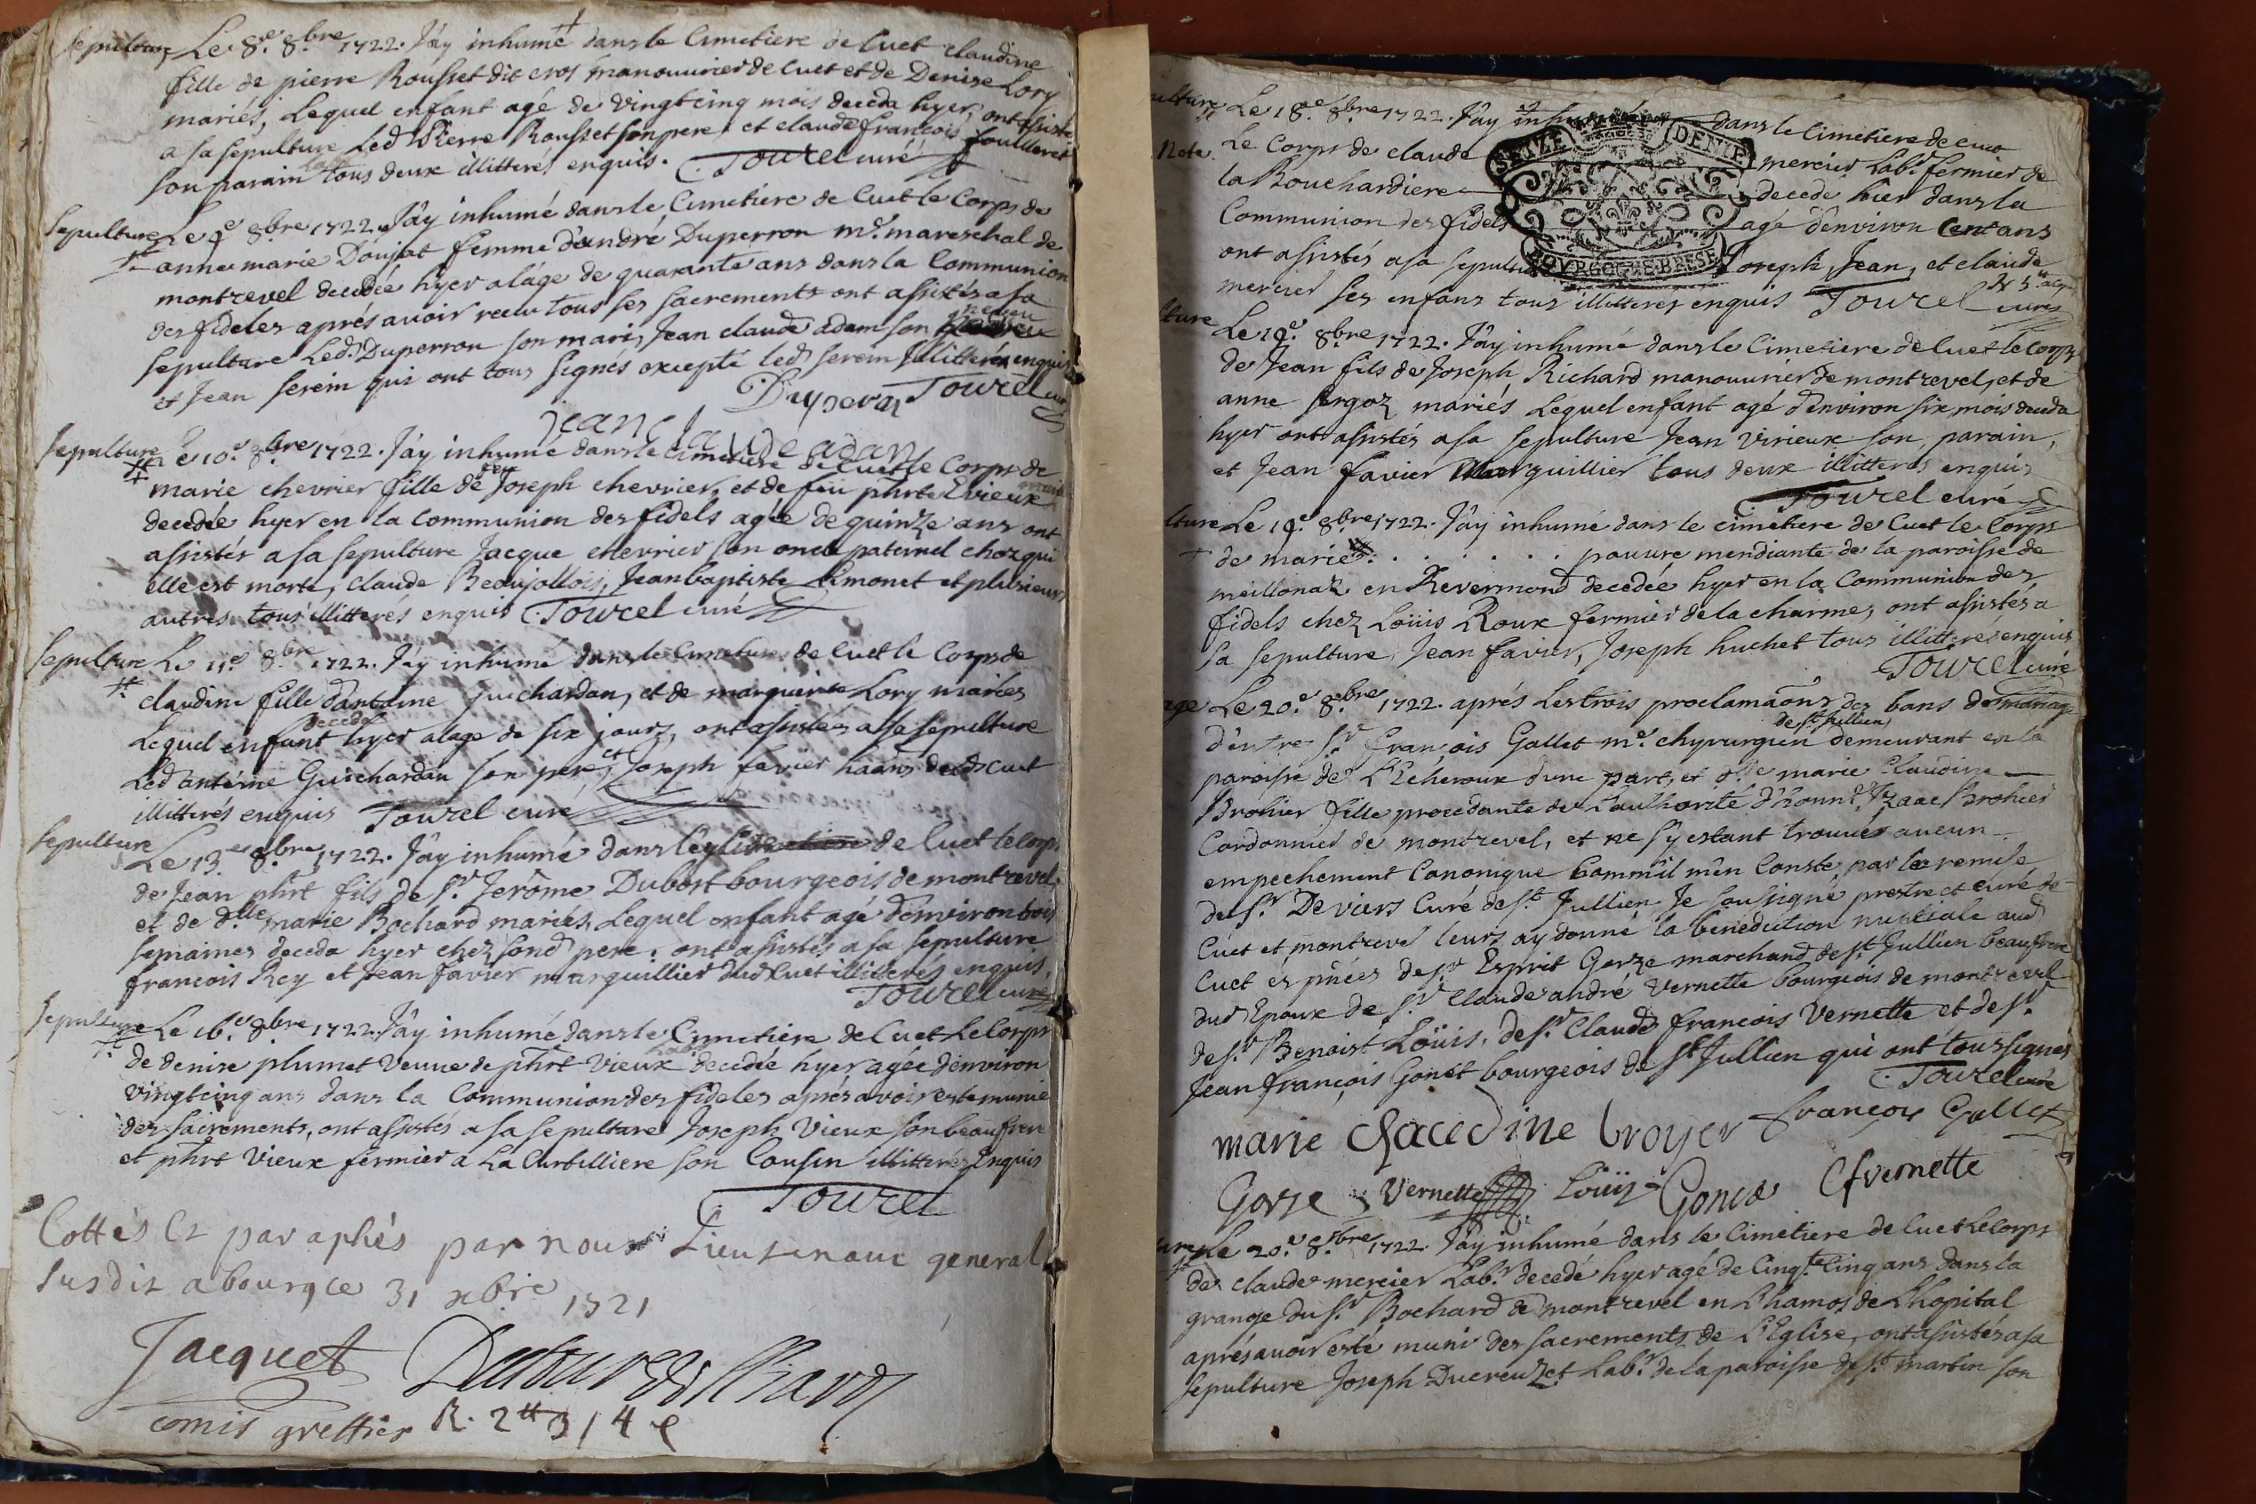 Sepulture Le 8.e 8.bre 1722. J'ay inhumé dans le Cimetiere de Cuet claudine
fille de pierre Rousset dit cros manouurier de Cuet et de Denise Lory
mariés, Lequel enfant agé de vingtcinq mois deceda hyer, ont assisté
a sa sepulture Led Pierre Rousset son pere et claude francois foulleret
son parain tous deux illitterés enquis. Tourel curé
Sepulture Le 9e 8.bre 1722. J'ay inhumé dans le Cimetiere de Cuet le Corps de
anne marie Doujat femme d'andré Duperron m.e mareschal de
montrevel decedée hyer a l'áge de quarante ans dans la Communion
des fideles aprés auoir receu tous ses sacrements ont assistés a sa
sepulture Led Duperron son mari, Jean claude adam son neveu
et Jean serein qui ont tous signés excepté led serein Jllitteré enquis
Duperon Tourel curé
jean claude adan
Sepulture Le 10.e 8.bre 1722. J'ay inhumé dans le cimetiere de Cuet le Corps de
marie chevrier fille de Joseph chevrier, et de feüe phrte Evieux
decedée hyer en la Communion des fidels agée de quinze ans ont
assistés a sa sepulture Jacque chevrier son oncle paternel chez qui
elle est morte, claude Beaujollois, Jean baptiste Limonet et plusieurs
autres tous illitterés enquis Tourel curé
Sepulture Le 11.e 8.bre 1722. J'ay inhumé dans le Cimetiere de Cuet le Corps de
claudine fille d'antoine guichardan, et de marguerite Lory mariés
deceda
Lequel enfant hyer a l'age de six jours, ont assistés a sa sepulture
Led anteine Guichardan son pere, et Joseph favier haans dud Cuet
illitterés enquis Tourel curé
Sepulture Le 13.e 8.bre 1722. J'ay inhumé dans l'eglise de Cuet le Corps
de Jean phrt fils de s.r Jerôme Dubost bourgeois de montrevel
et de d.lle marie Bochard mariés, Lequel enfant agé d'environ trois
semaines deceda hyer chez sond pere, ont assistés a sa sepulture
francois Rey et Jean favier marguillier dud Cuet illitterés enquis,
Tourel curé
Sepulture Le 16.e 8.bre 1722. J'ay inhumé dans le Cimetiere de Cuet Le Corps
de denise plumet veuve de phrt vieux decedée hyer agée d'environ
vingtcinq ans dans la Communion des fideles aprés avoir esté munie
des sacrements, ont assistés a sa sepulture Joseph Vieux son beaufrere
et phrt Vieux fermier a La Curtilliere son Cousin illitterés Enquis
Tourel
Cottés Et paraphés par nous Lieutenant general
susdit a bourg ce 31 xbre 1721
Jacquet
comis greffier R. 2tt 3 / 4 e
Le 18.e 8.bre 1722. J'ay inhumé dans le Cimetiere de Cuet
Nota. Le Corps de claude mercier Lab.r fermier de
la Bouchardiere decedé hier dans la
Communion des fidels agé d'environ Cent ans
ont assistés a sa sepulture Joseph, Jean, et claude
mercier ses enfans tous illitterés enquis Tourel curé
SEIZE DENIE
BOVRGOGNE BRESE
Le 19.e 8.bre 1722. J'ay inhumé dans le Cimetiere de Cuet le Corps
de Jean fils de Joseph Richard manouurier de montrevel, et de
anne forgoz mariés, Lequel enfant agé d'environ six mois deceda
hyer ont assistés a sa sepulture Jean virieux son parain,
et Jean favier Marguillier tous deux illitterés enquis
Tourel curé
Le 19.e 8bre 1722. J'ay inhumé dans le cimetiere de Cuet le Corps
de marie . . . . . . . pauure mendiante de la paroisse de
meillonaz en Revermond decedée hyer en la Communion des
fidels chez Loüis Roux fermier de la charme, ont assistés a
sa sepulture, Jean favier, Joseph huchet tous illitterés enquis
Tourel curé
Le 20.e 8.bre 1722. aprés les trois proclamãons des bans de mariage
de st Jullien
d'entre s.r François Gallet m.e chyrurgien demeurant en la
paroisse de L'Echeroux d'une part, et d.lle marie Claudine
Brohier fille procedante de L'authorité d'honn.e Jzaac Brohier
Cordonnier de montrevel, et ne s'y estant trouués aucun
empechement Canonique Comm'il m'en Conste par la remise
de s.r De viers Curé de s.t Jullien Je soussigné prestre et curé de
Cuet et montrevel leurs ay donné la benediction nuptiale aud
Cuet es pñces de s.r Esprit Gorze marchand de s.t Jullien beaufrere
dud Epoux de s.r Claude andré Vernette bourgeois de montrevel
de s.r Benoist Loüis, de s.r Claude francois Vernette et de s.r
Jean françois Gonet bourgeois de st Jullien qui ont tous signés
Tourel curé
marie claudine broyer françois Gallet
Gorze Vernette Loüis Gonet Cf vernette
Le 20.e 8.bre 1722. J'ay inhumé dans le Cimetiere de Cuet Le Corps
de claude mercier Lab.r decedé hyer agé de Cinq.te Cinq ans dans la
grange du s.r Bochard de montrevel en L'hamos de L'hopital
aprés auoir esté muni des sacrements de L'Eglise, ont assistés a sa
sepulture Joseph Ducreuzet Lab.r de la paroisse de s.t martin son